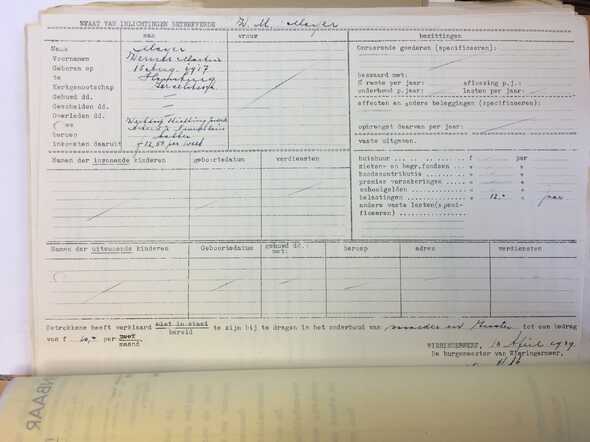 STAAT VAN INLICHTINGEN BETREFFENDE W. M. Mayer
man vrouw bezittingen
Naam Mayer
Voornamen Werner Martin
Geboren op 1917
te Hamburg
Kerkgenootschap Israelitisch
Gehuwd dd.
Gescheiden dd.
Overleden dd.
beroep
inkomsten daaruit f 12,50 per week
Onroerende goederen (specificeeren):
bezwaard met:
% rente per jaar: aflossing p.j.:
onderhoud p.jaar: lasten per jaar:
effecten en andere beleggingen (specificeeren):
opbrengst daarvan per jaar:
vaste uitgaven.
Namen der inwonende kinderen geboortedatum verdiensten
huishuur f per
zieken- en begr.fondsen
bondscontributie
premies verzekeringen
schoolgelden
belastingen 12,- jaar
andere vaste lasten(speci-
ficeeren)
Namen der uitwonende kinderen Geboortedatum gehuwd dd. met: beroep adres verdiensten
Betrokkene heeft verklaard niet in staat te zijn bij te dragen in het onderhoud van moeder en tot een bedrag
bereid
van f per week
maand
WIERINGERWERF, April 1939.
De burgemeester van Wieringermeer,